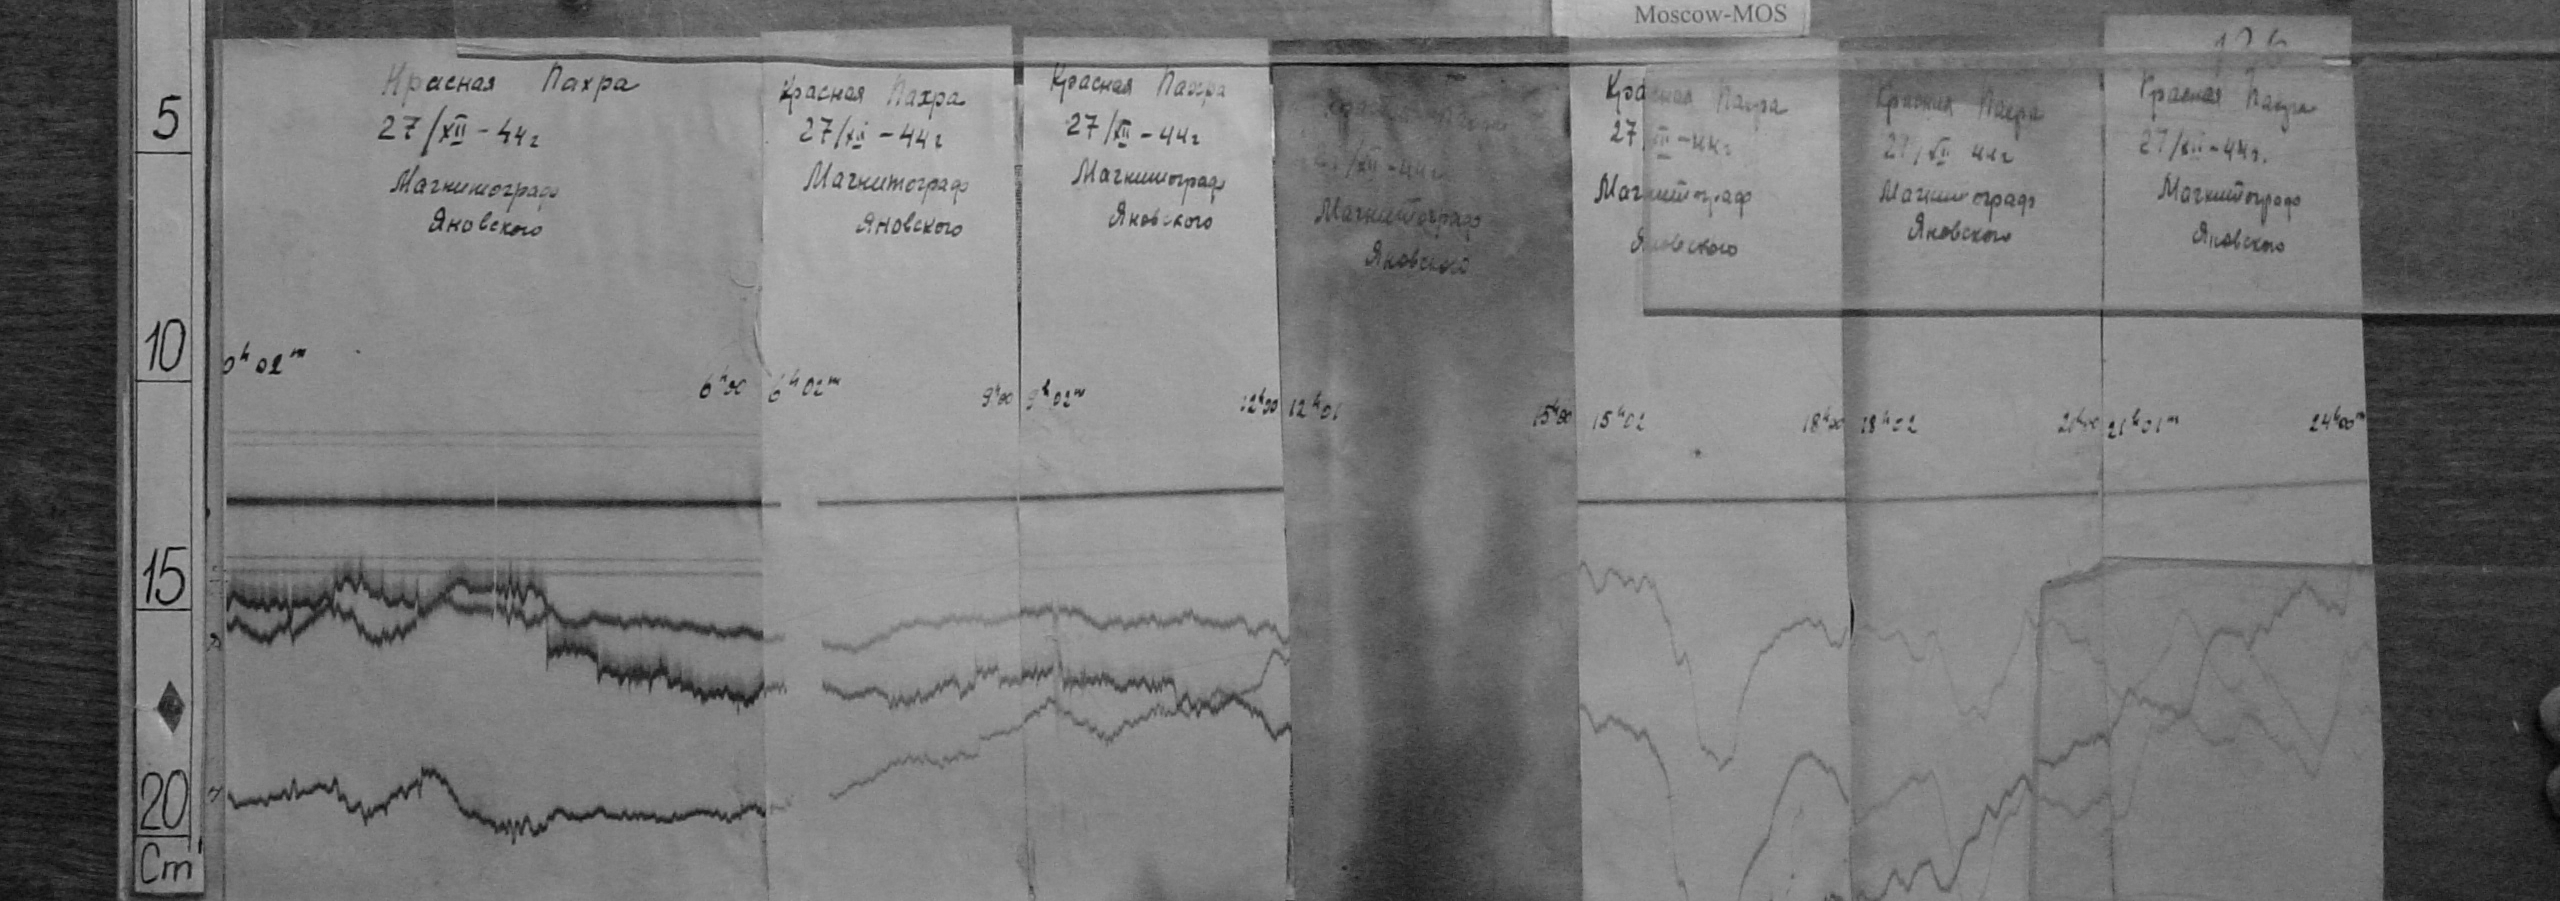 Moscow-MOS
5
10
15
20
Cm
Красная Пахра
27/XII-44г
Магнитограф
Яновского
0ʰ02ᵐ
6ʰ00
Красная Пахра
27/XII-44г
Магнитограф
Яновского
6ʰ02ᵐ
9ʰ00
Красная Пахра
27/XII-44г
Магнитограф
Яновского
9ʰ02ᵐ
12ʰ00
Красная Пахра
27/XII-44г
Магнитограф
Яновского
12ʰ01
15ʰ00
Красная Пахра
27 XII-44г
Магнитограф
Яновского
15ʰ02
18ʰ00
Красная Пахра
27/XII 44г
Магнитограф
Яновского
18ʰ02
21ʰ00
Красная Пахра
27/XII-44г.
Магнитограф
Яновского
21ʰ01ᵐ
24ʰ00ᵐ